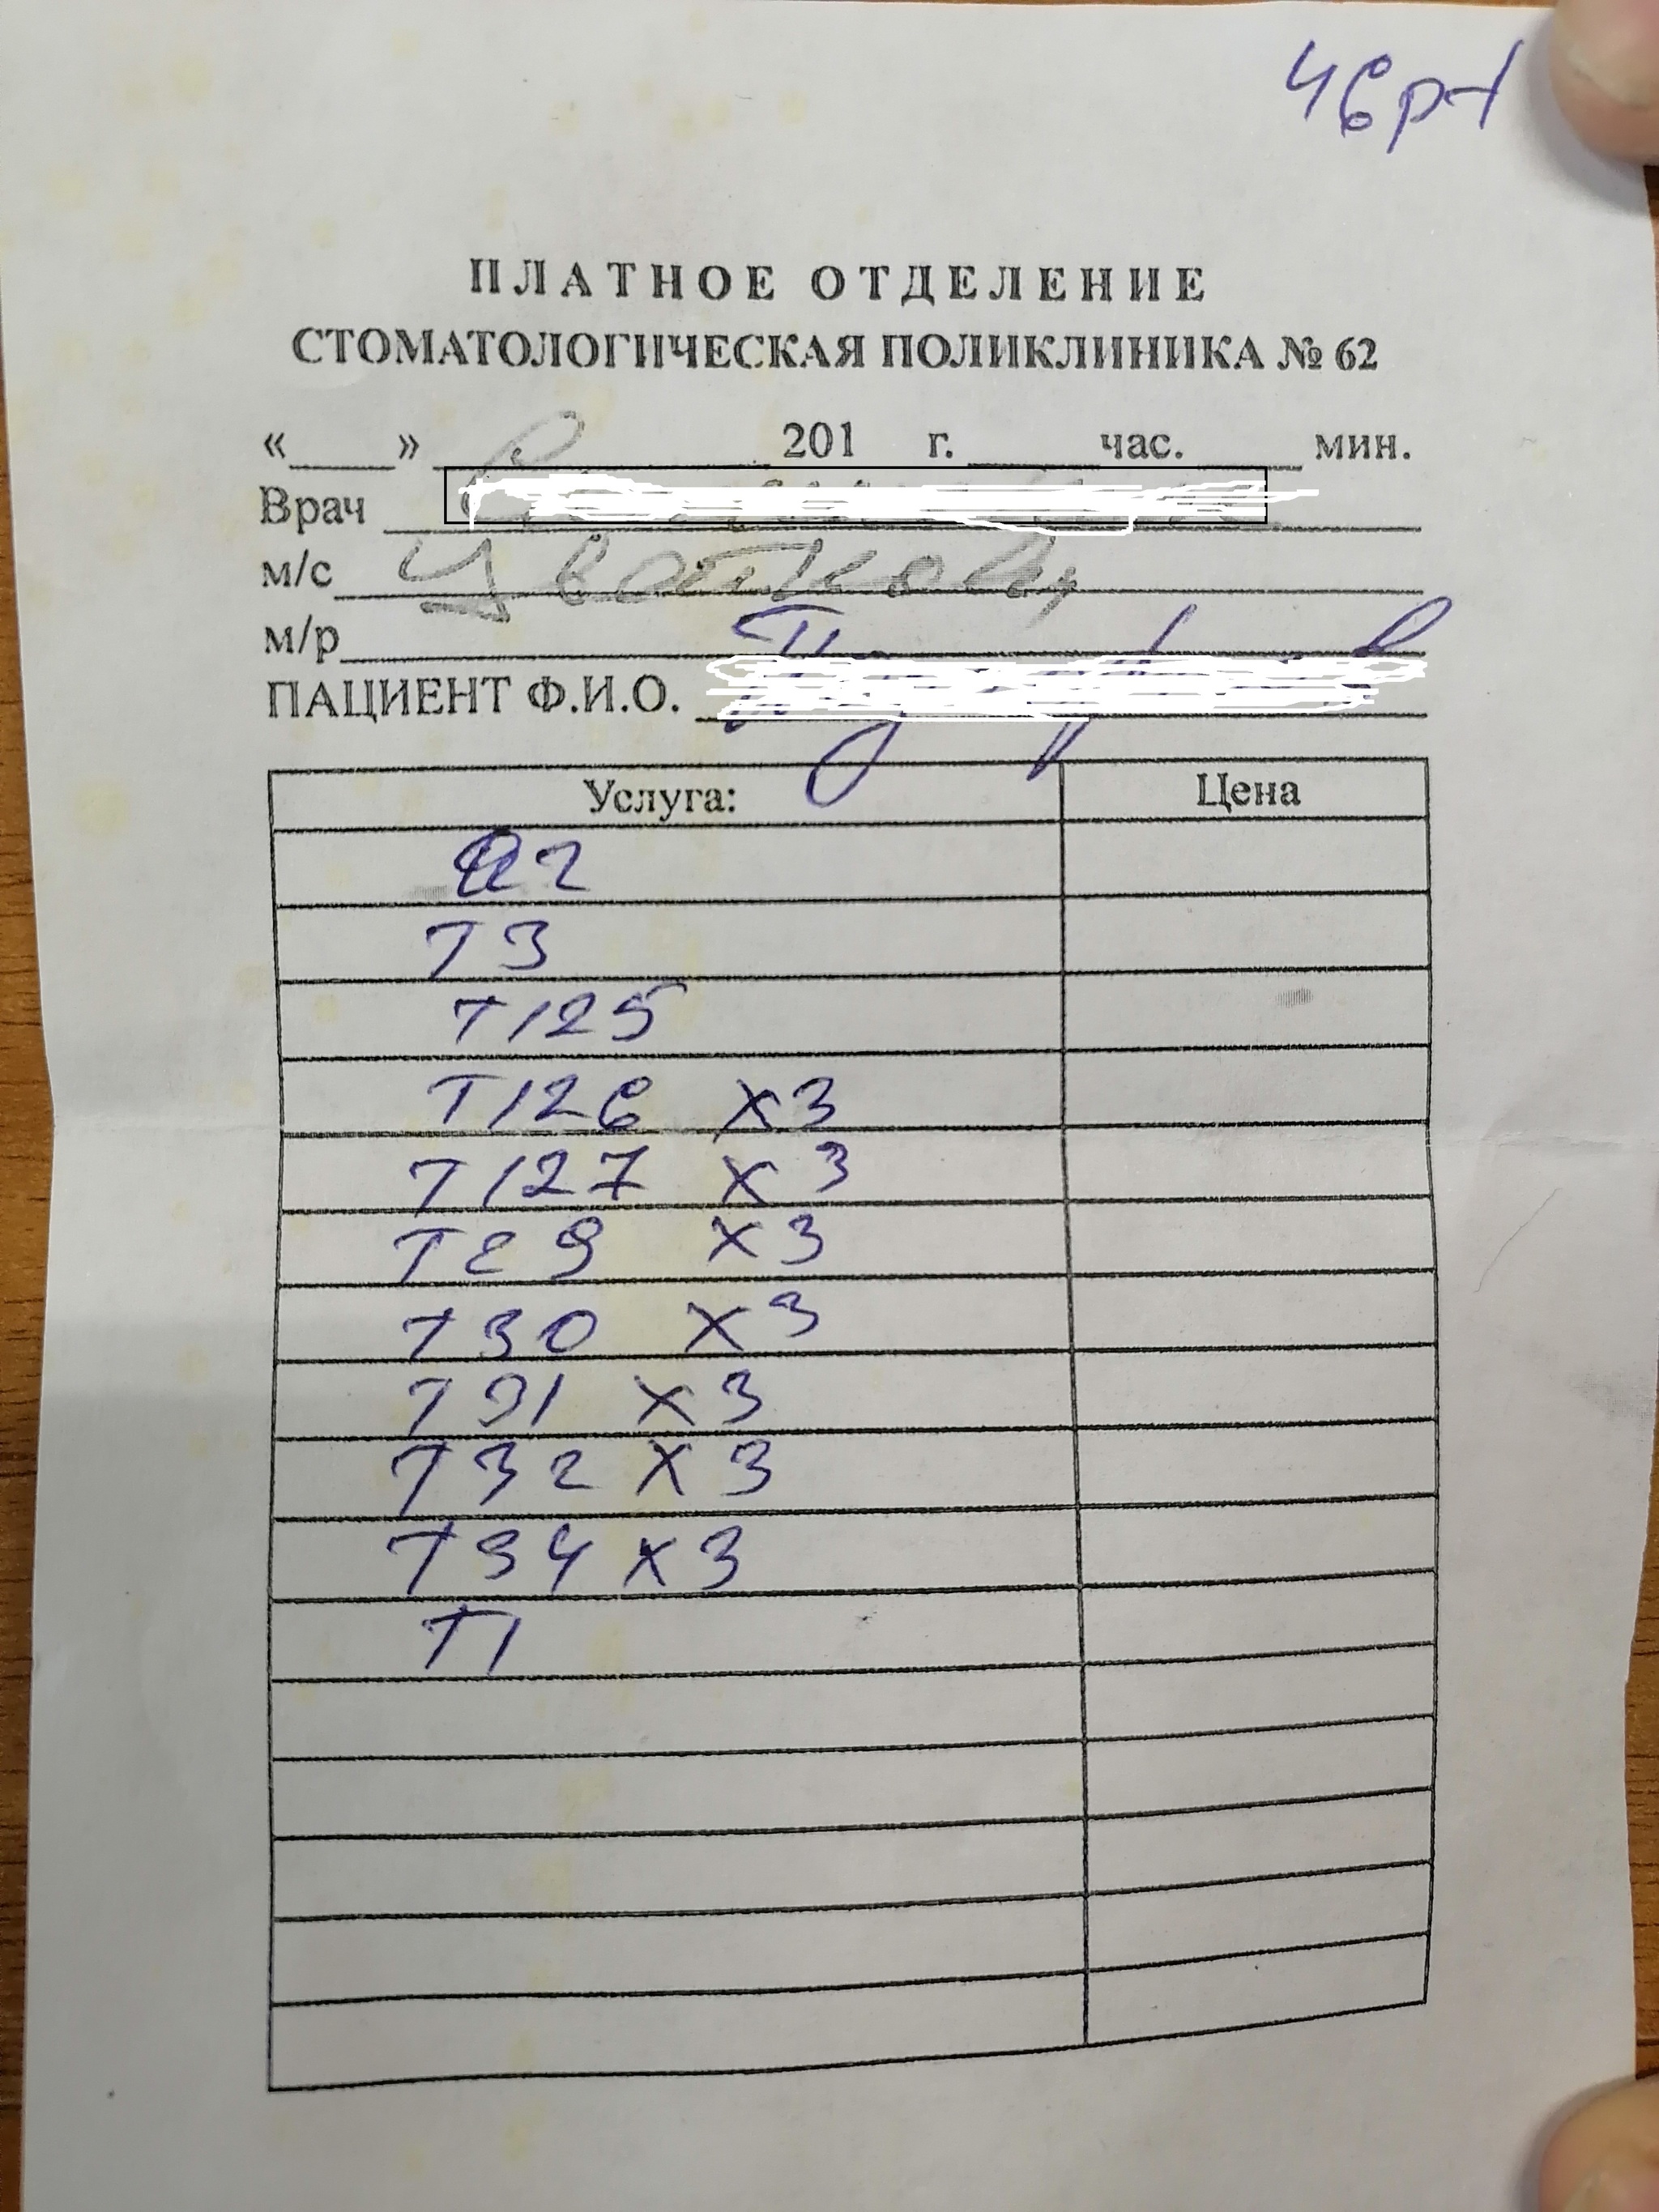 ПЛАТНОЕ ОТДЕЛЕНИЕ
СТОМАТОЛОГИЧЕСКАЯ ПОЛИКЛИНИКА № 62
«____» ________ 201 г. ____ час. ____ мин.
Врач
м/с
м/р
ПАЦИЕНТ Ф.И.О.
Услуга: Цена
Т3
Т125
Т126 х3
Т127 х3
Т29 х3
Т30 х3
Т31 х3
Т32 х3
Т34 х3
Т1